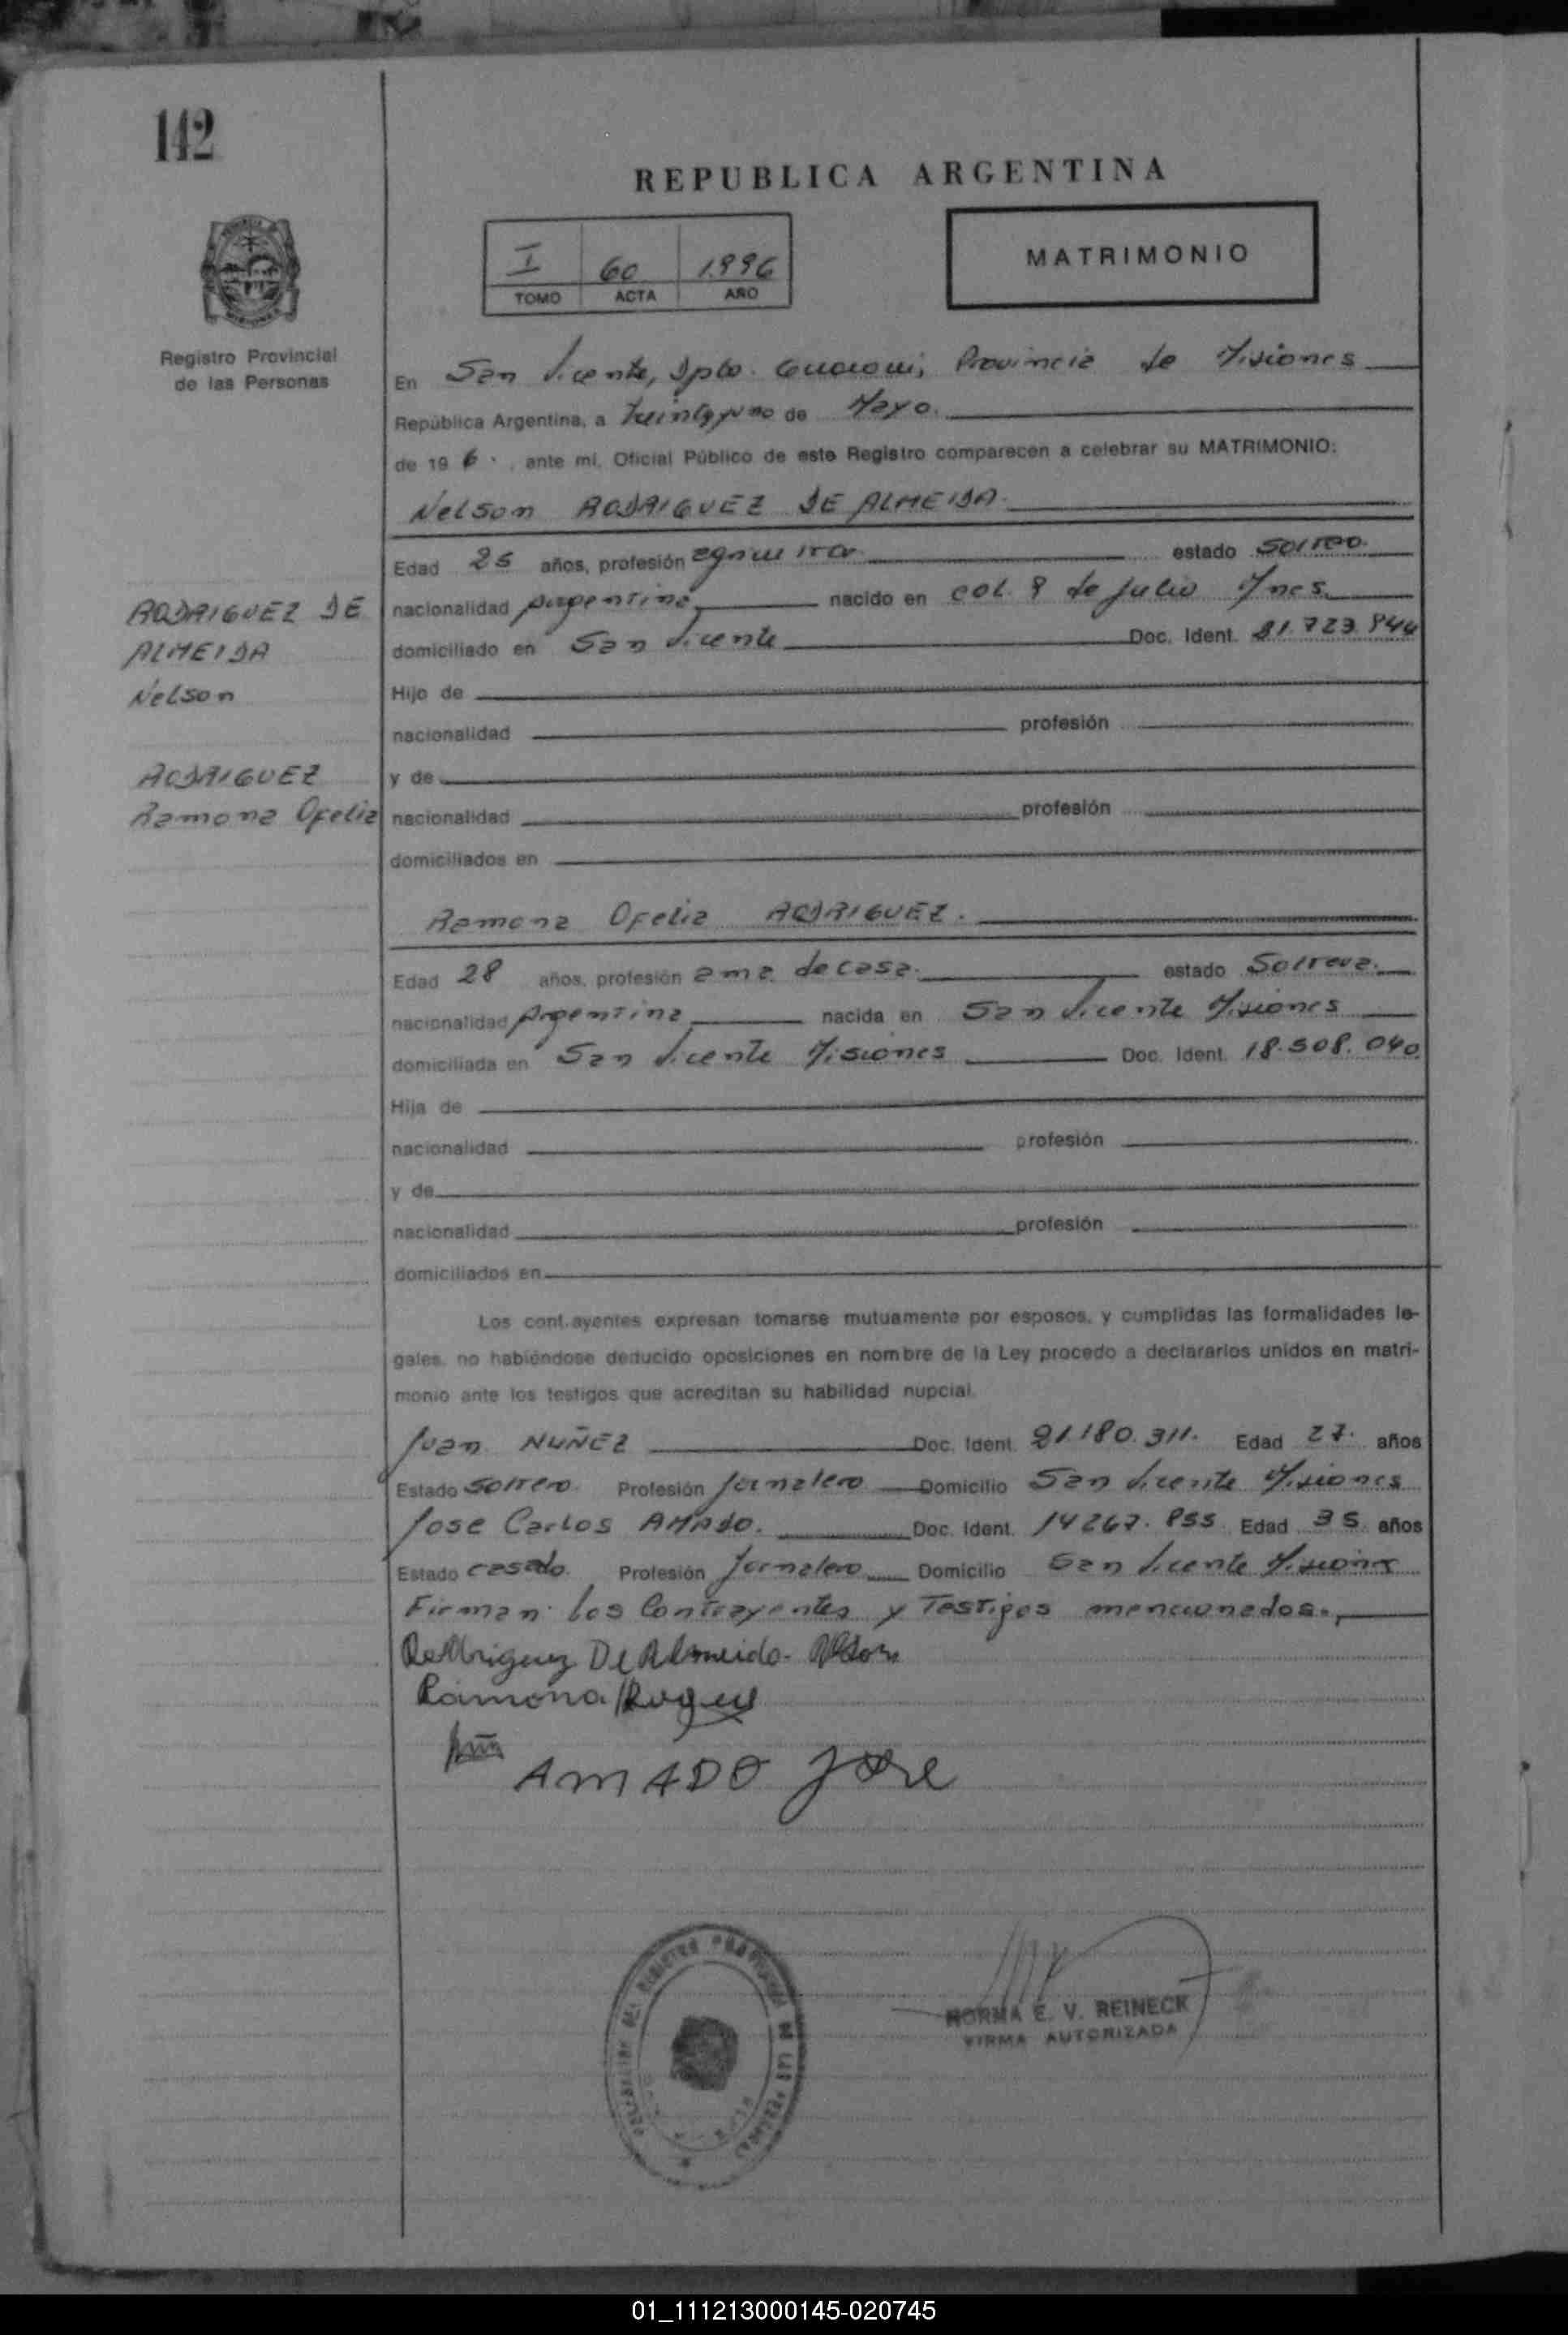 142
REPUBLICA ARGENTINA
I 60 1.996
TOMO ACTA AÑO
MATRIMONIO
Registro Provincial
de las Personas
En San Vicente, Dpto. Guarani, Provincia de Misiones
República Argentina, a treintayuno de Mayo.
de 19 6. , ante mí, Oficial Público de este Registro comparecen a celebrar su MATRIMONIO:
Nelson RODRIGUEZ DE ALMEIDA.
Edad 25 años, profesión agricultor estado Soltero.
nacionalidad Argentina nacido en Col. 9 de Julio Mnes.
domiciliado en San Vicente Doc. Ident. 21.723.944
Hijo de
nacionalidad profesión
y de
nacionalidad profesión
domiciliados en
RODRIGUEZ DE
ALMEIDA
Nelson
RODRIGUEZ
Ramona Ofelia
Ramona Ofelia RODRIGUEZ.
Edad 28 años, profesión ama de casa. estado Soltera.
nacionalidad Argentina nacida en San Vicente Misiones
domiciliada en San Vicente Misiones Doc. Ident. 18.508.040
Hija de
nacionalidad profesión
y de
nacionalidad profesión
domiciliados en
Los contrayentes expresan tomarse mutuamente por esposos, y cumplidas las formalidades le-
gales, no habiéndose deducido oposiciones en nombre de la Ley procedo a declararlos unidos en matri-
monio ante los testigos que acreditan su habilidad nupcial.
Juan NUÑEZ Doc. Ident. 21.180.311. Edad 27. años
Estado Soltero. Profesión Jornalero Domicilio San Vicente Misiones
Jose Carlos AMADO. Doc. Ident. 14.267.855 Edad 35 años
Estado casado. Profesión Jornalero Domicilio San Vicente Misiones
Firman los Contrayentes y Testigos mencionados.
Rodriguez De Almeida Nelson
Ramona
AMADO Jose
NORMA E. V. REINECK
FIRMA AUTORIZADA
01_111213000145-020745